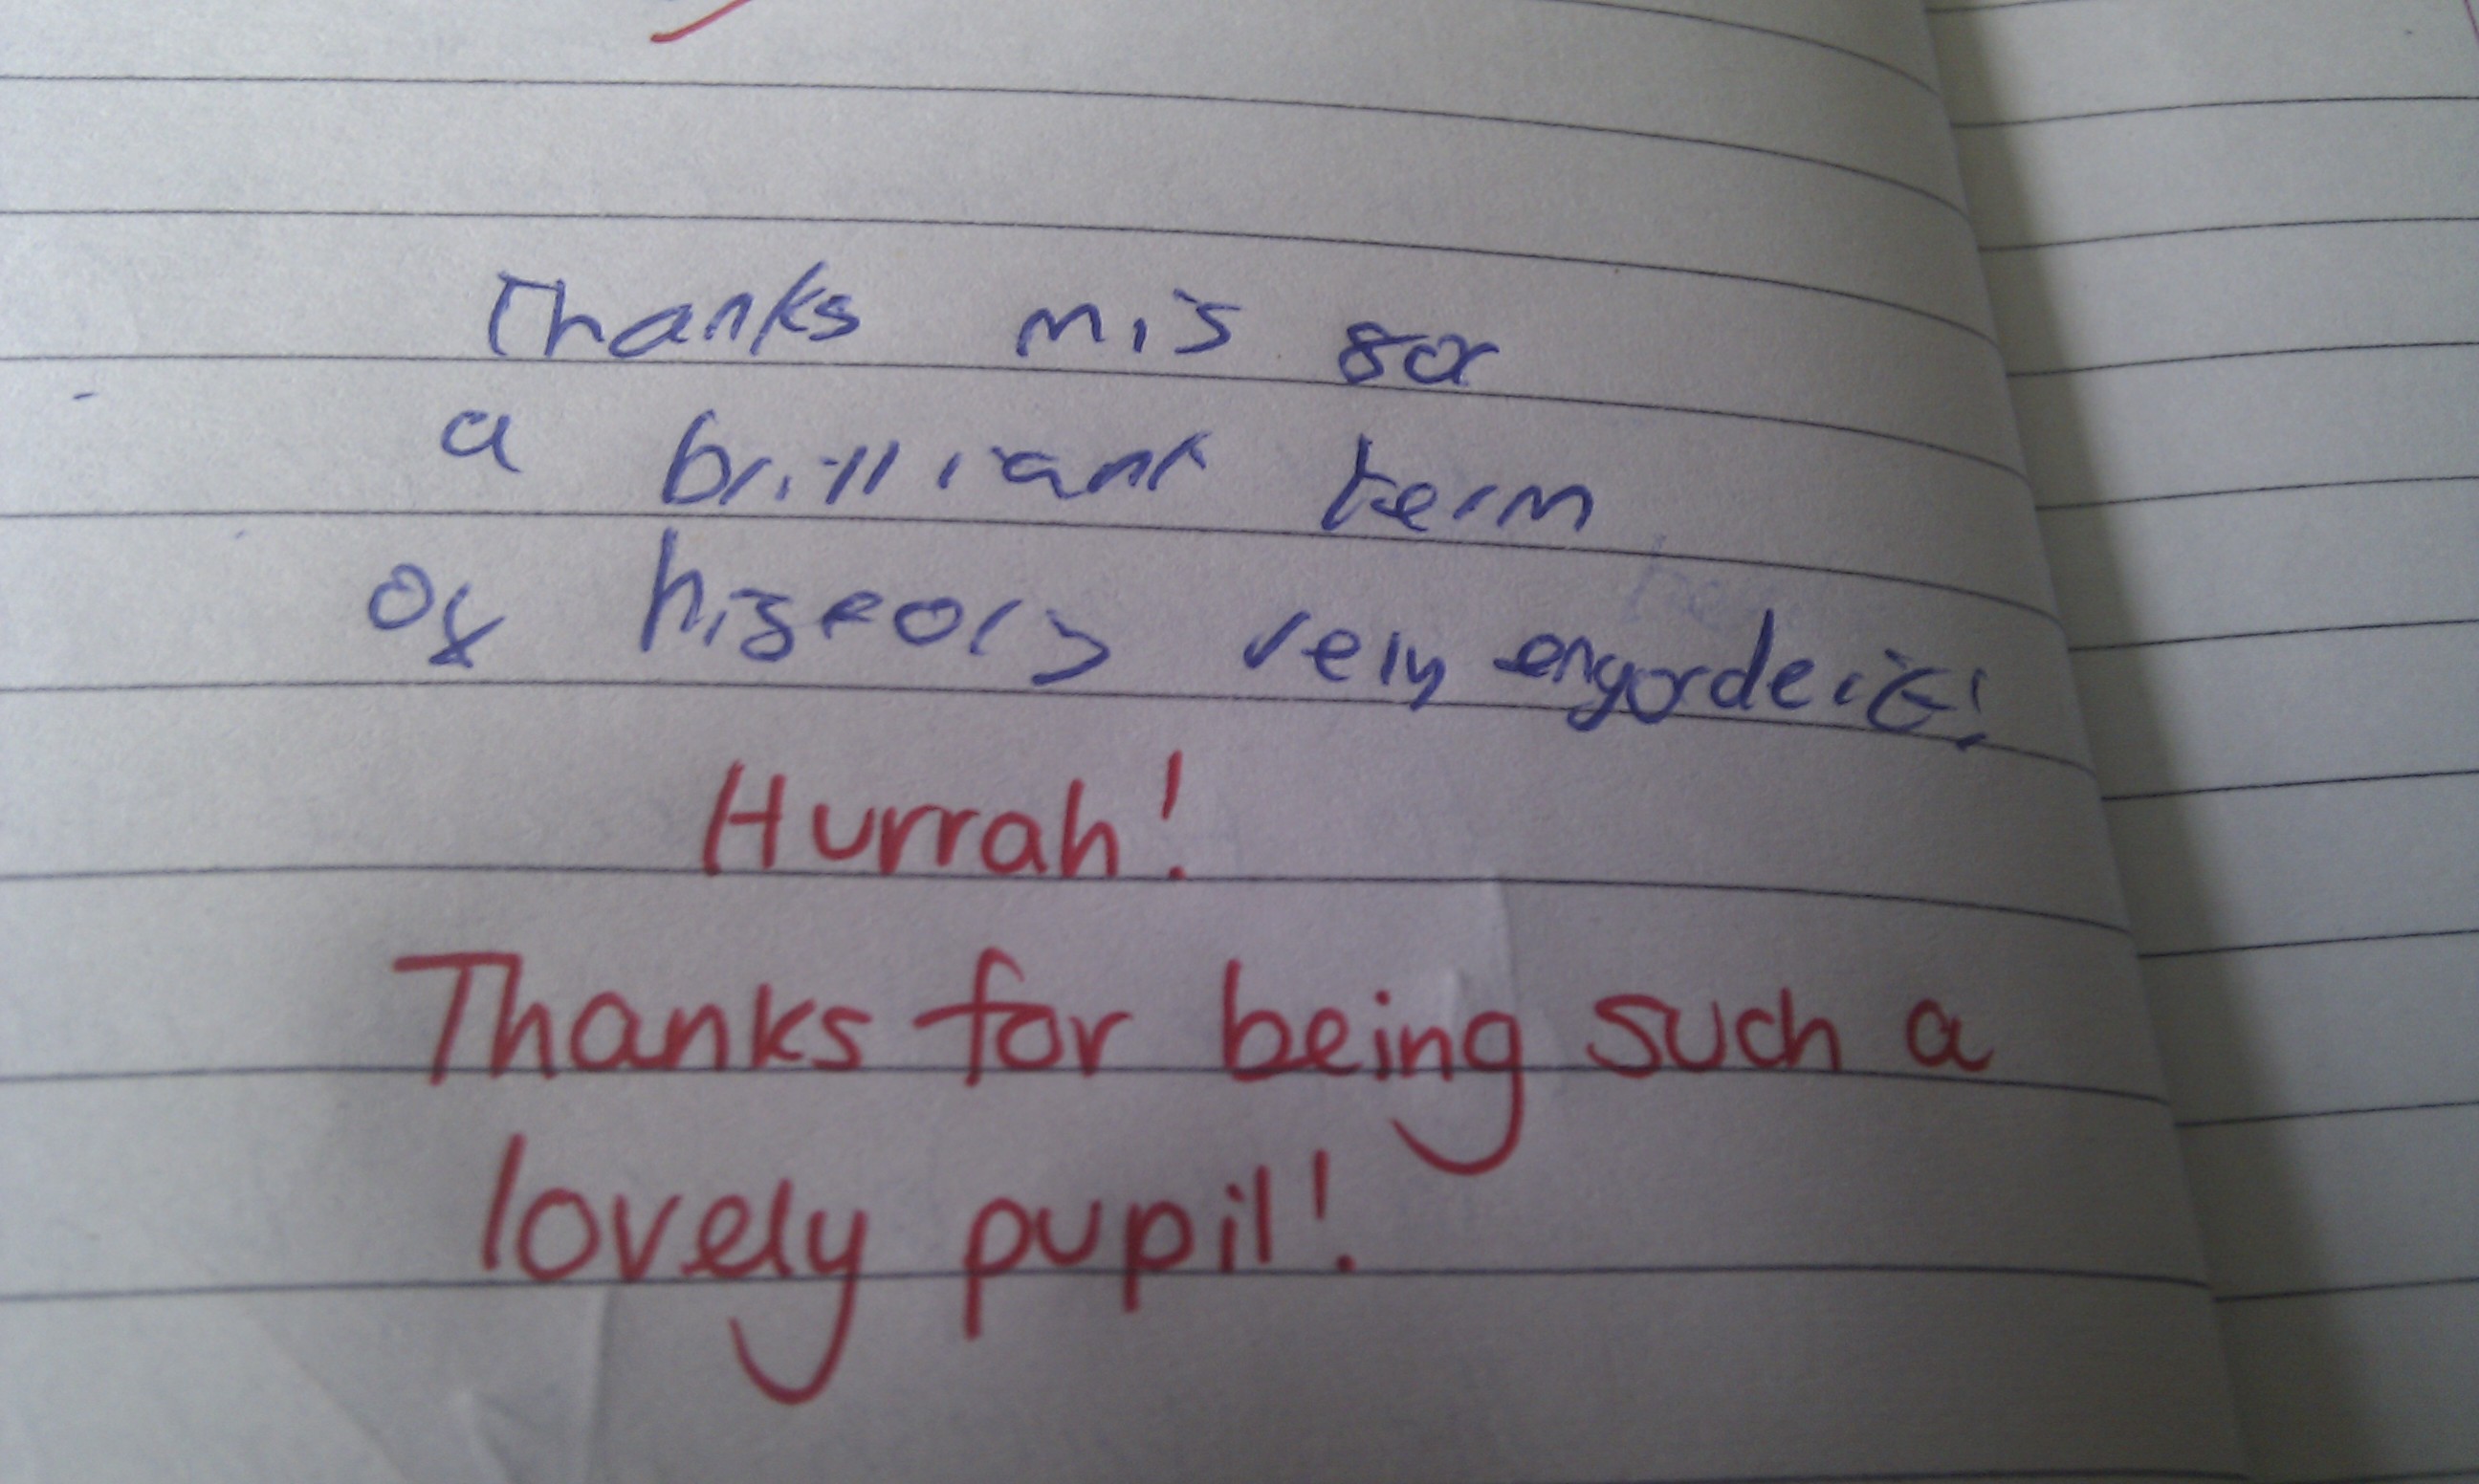 Thanks mis for
a brilliant term
of history very
Hurrah!
Thanks for being such a
lovely pupil!